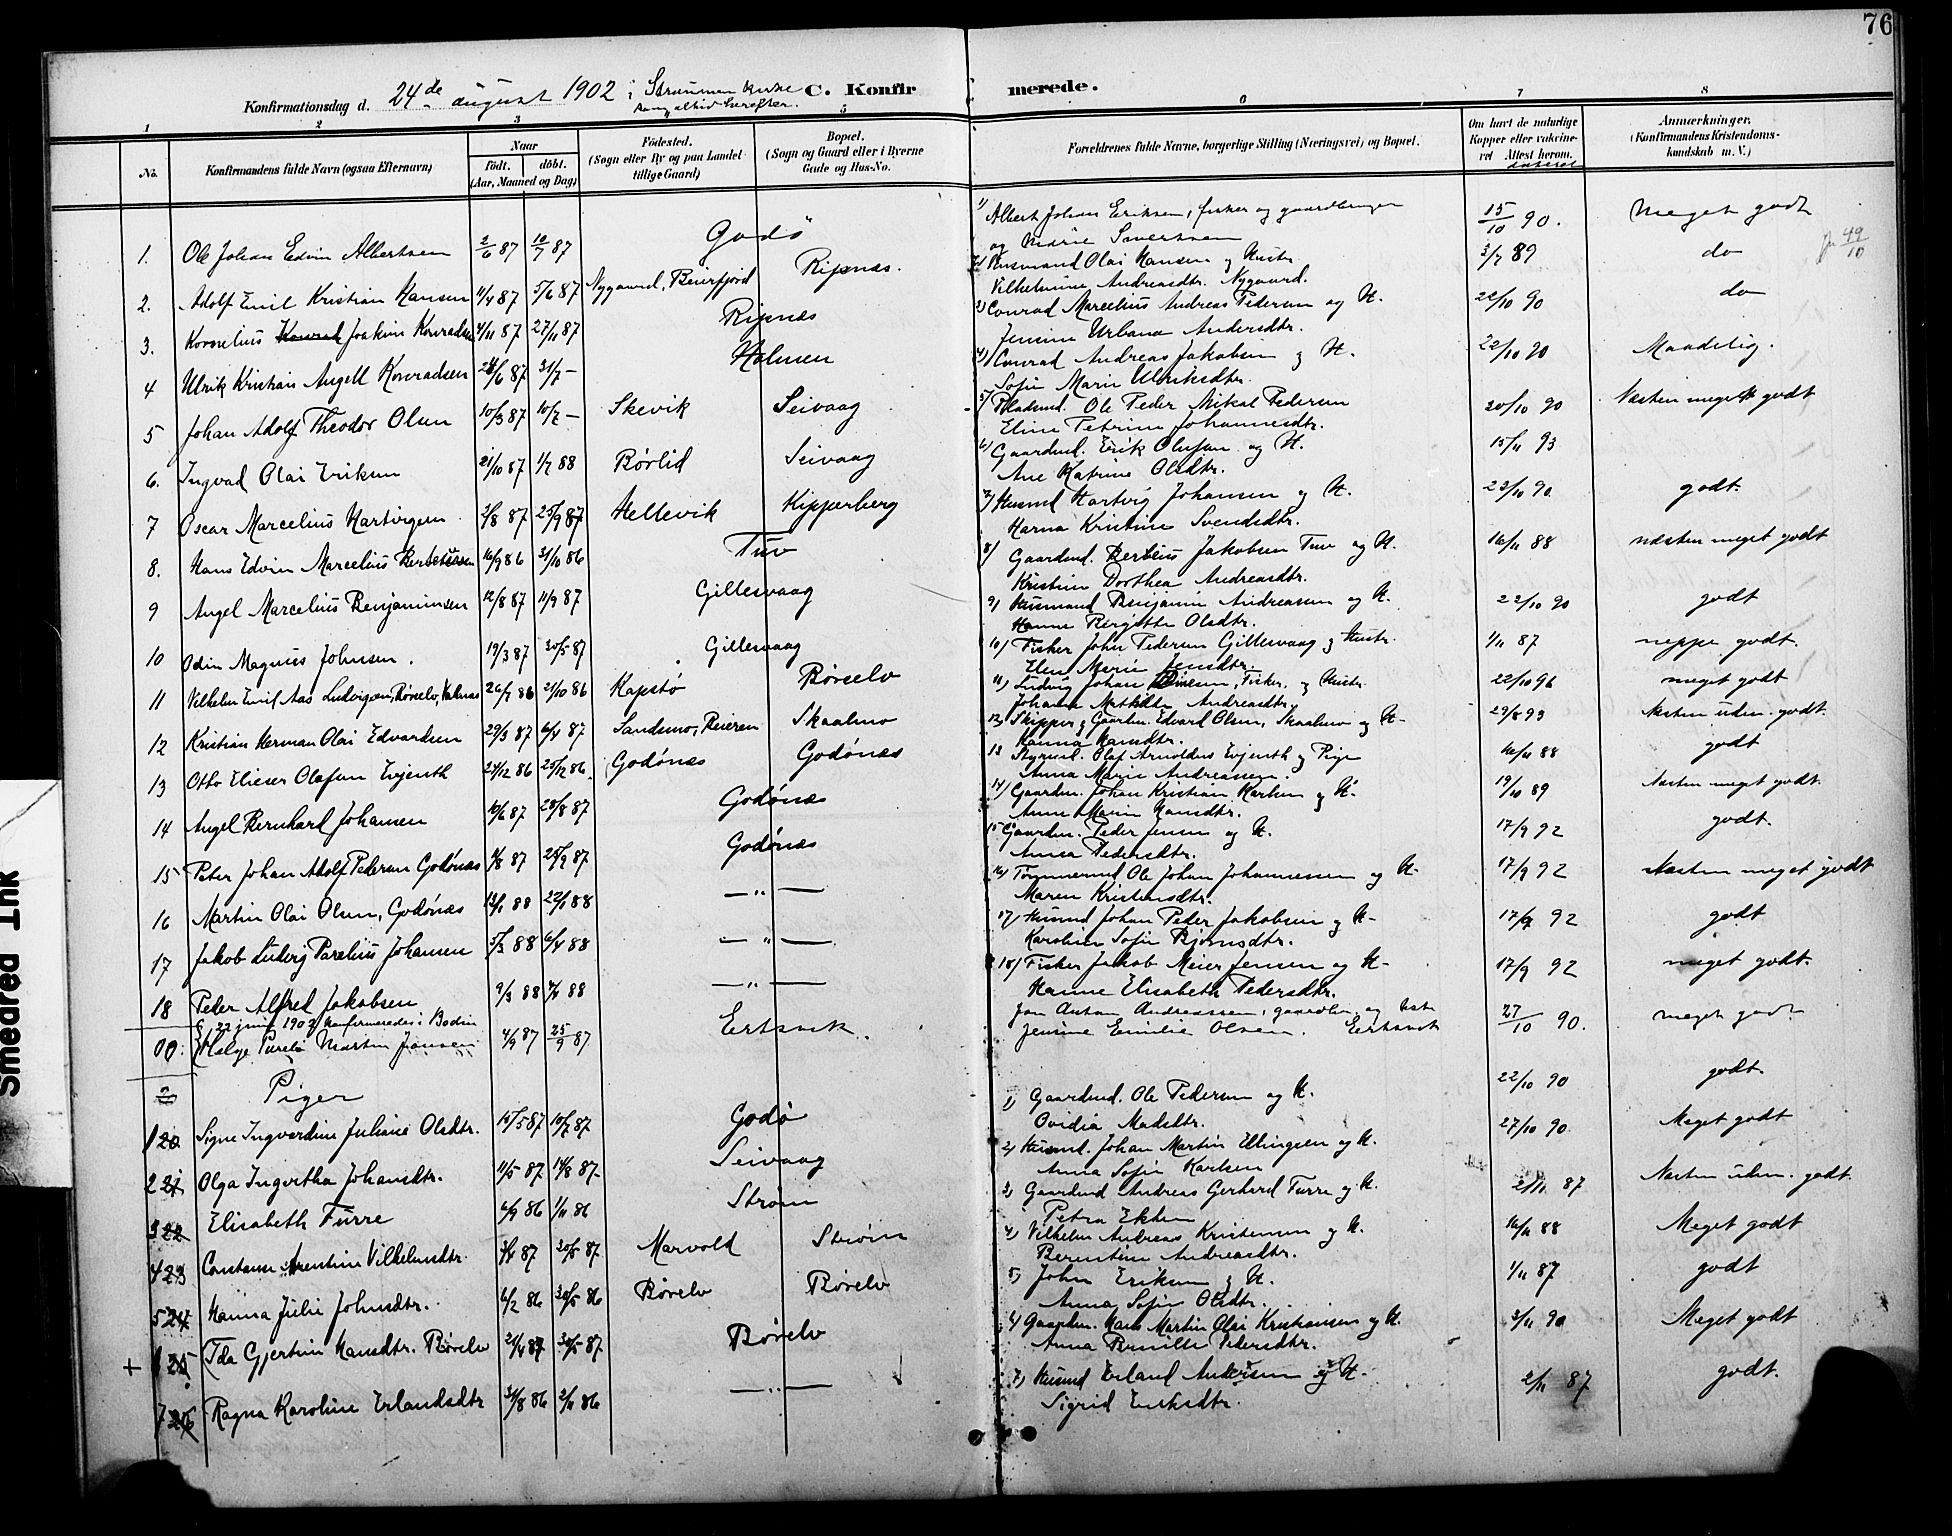 76
Konfirmationsdag d. 24de august 1902 i Strømmen kirke C. Konfirmerede.
1 2 3 4 5 6 7 8
No. Konfirmandens fulde Navn (ogsaa Efternavn) Naar født. døbt. (Aar, Maaned og Dag) Födested. (Sogn eller By og paa Landet tillige Gaard) Bopæl. (Sogn og Gaard eller i Byerne Gade og Hus-No.
Forældrenes fulde Navne, borgerlige Stilling (Næringsvei) og Bopæl. Om havt de naturlige Kopper eller vakcineret Attest herom. Anmærkninger. (Konfirmandens Kristendomskundskab m. V.)
1. Ole Johan Edvin Albertsen 2/6 87 10/7 87 Godø
1) Albert Johan Eriksen, fisker og gaardbruger og Marie Sivertsen 15/10 90. Meget godt
2. Adolf Emil Kristian Hansen 11/4 87 5/6 87 Nygaard, Beierfjord Ripnæs.
2) Husmand Olai Hansen og Hustr. Vilhelmine Andreasdtr. Nygaard. 3/7 89 do
3. Kornelius Konrad Joakim Konradsen 4/11 87 27/11 87 Ripnæs
3) Conrad Marcelius Andreas Pedersen og H. Jensine Urbana Andersdtr. 22/10 90 do
4 Ulrik Kristian Angell Konradsen 24/6 87 31/7 — Holmen
4) Conrad Andreas Jakobsen og H. Sofie Marie Ulriksdtr. 22/10 90 Maadelig.
5 Johan Adolf Theodor Olsen 10/3 87 10/7 — Skevik Seivaag
5) Pladsmd. Ole Peder Mikal Pedersen Eline Petrine Johannesdtr. 20/10 90 Næsten meget godt
6. Ingvad Olai Eriksen 21/10 87 1/2 88 Børlid Seivaag
6) Gaardmd. Erik Olufsen og H. Ane Katrine Olsdtr. 15/11 93
7 Oscar Marcelius Hartvigsen 2/8 87 25/9 87 Hellevik Kipperberg
7) Husmd Hartvig Johansen og H. Harna Kristine Svendsdtr. 23/10 90 godt.
8. Hans Edvin Marcelius Berbeusen 16/9 86 31/10 86 Tuv
8) Gaardmd. Berbeus Jakobsen Tuv og H. Kristine Dorthea Andreasdtr. 16/11 88 næsten meget godt
9 Angel Marcelius Benjaminsen 12/8 87 11/9 87 Gillesvaag
9) Husmand Benjamin Andreasen og H. Hanne Bergitte Olsdtr. 22/10 90 godt
10 Odin Magnus Johnsen. 19/3 87 30/5 87 Gillesvaag
10) Fisker John Pedersen Gillesvaag og Hustr. Elen Marie Jensdtr. 1/11 87 neppe godt.
11 Vilhelm Emil Aas Ludvigsen, Børselv, Valnes 26/7 86 21/10 86 Kapstø Børselv
11) Ludvig Johan Dinesen, Fisker, og Hustr. Johanna Mathilde Andreasdtr. 22/10 96 meget godt
12 Kristian Herman Olai Edvardsen 29/3 87 6/4 87 Sandmo, Beieren Skaalmo
12) Skipper og Gaardm. Edvard Olsen, Skaalmo og H— Hanna Hansdtr. 29/8 93 Næsten uden. godt.
13 Otto Elieser Olafsen Evjenth 24/12 86 25/12 86. Godønæs Godønæs
13 Styrmd. Olaf Arnoldus Evjenth og Pige Anna Marie Andreassen. 16/11 88 godt
14 Angel Bernhard Johansen 10/6 87 28/8 87 Godønæs
14) Gaardm. Johan Kristian Karlsen og H. Anne Marie Hansdtr. 19/10 89 Næsten meget godt.
15 Peter Johan Adolf Pedersen Godønæs 4/8 87 25/9 87 Godønæs
15 Gaardm. Peder Jensen og H. Anna Pedersdtr. 17/9 92 godt.
16 Martin Olai Olsen, Godønæs 13/1 88 22/1 88 —„—
16) Tømmermd Ole Johan Johannessen og H— Maren Kristensdtr. 17/9 92 Næsten meget godt
17 Jakob Ludvig Parelius Johansen 5/3 88 6/4 88 —„—
17) Husmd Johan Peder Jakobsen og H— Karoline Sofie Bjørnsdtr. 17/9 92 godt
18 Peder Alfred Jakobsen 9/3 88 88 —„—
18) Fisker Jakob Meier Jensen og H— Hanne Elisabeth Pedersdtr. 17/9 92 meget godt.
22 juni 1902 konfirmeredes i Bodin
00. Helge Martin Jansen 4/9 87 25/9 87 Ertsvik.
Jan Anton Andreassen, gaardbr. og Jensine Emilie Olsen. Ertsvik 27/10 90. meget godt
Piger
1 20 Signe Ingvardine Juliane Olsdtr. 15/5 87 10/7 87 Godø
1) Gaardmd. Ole Pedersen og H. Ovidia Madsdtr. 22/10 90 godt.
2 21 Olga Ingertha Johansdtr. 11/5 87 14/8 87 Seivaag
2) Husmd. Johan Martin Ellingsen og H. Anna Sofie Karlsen 27/10 90. Meget godt
3 22 Elisabeth Furre 6/9 86 1/11 86 Strøm
3) Gaardmd Andreas Gerhard Furre og H. Petra 2/11 87 Næsten uden. godt.
4 23 Constanse Arentine Vilhelmsdtr. 3/4 87 30/5 87. Marvold Strøm
4) Vilhelm Andreas Kristensen og H. Berentine Andreasdtr. 16/11 88 Meget godt
5 24 Hanna Julie Johnsdtr. 6/2 86 30/5 86 Børelv Børelv
5) John Eriksen og H. Anna Sofie Olsdtr. 1/11 87 godt
+ 6 25 Ida Gjertine Hansdtr. Børelv 21/4 87 30/5 87. Børelv
6) Gaardm. Hans Martin Olai Kristiansen og H. Anna Pernille Pedersdtr. 3/11 90 Meget godt
7 26 Ragna Karoline Erlandsdtr 31/8 86 2/11 86 —„—
7) Husmd Erland Andersen og H. Sigrid Eriksdtr. 2/11 87 godt.
Smedred Ink